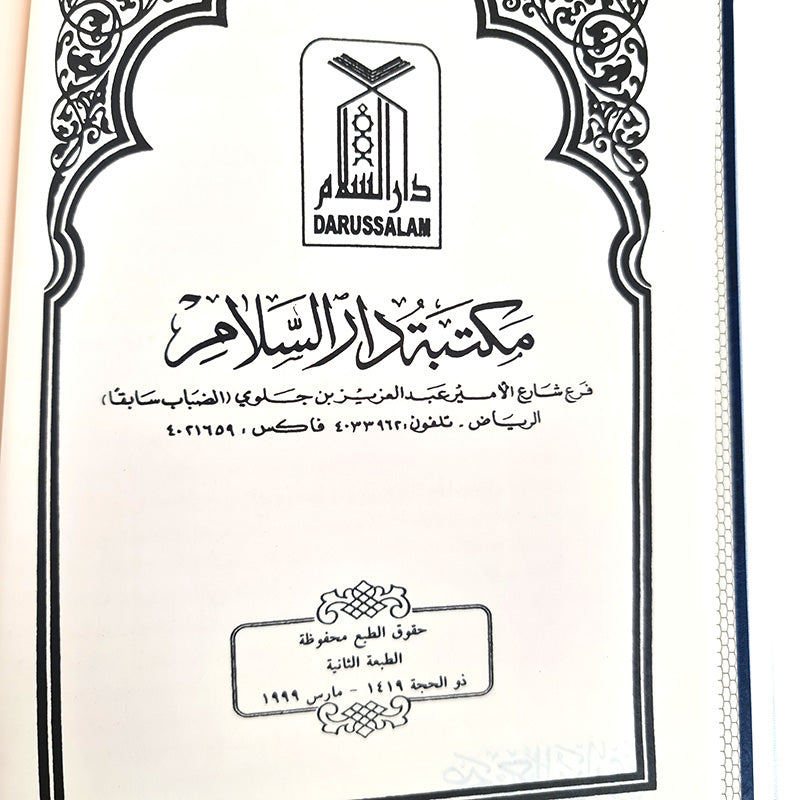 دار السلام
DARUSSALAM
مَكتَبَةُ دَارُ السَّلَامِ
فرع شارع الأمير عبد العزيز بن جلوي (الضباب سابقًا)
الرياض - تلفون: ٤٠٣٣٩٦٢ فاكس: ٤٠٢١٦٥٩
حقوق الطبع محفوظة
الطبعة الثانية
ذو الحجة ١٤١٩ - مارس ١٩٩٩